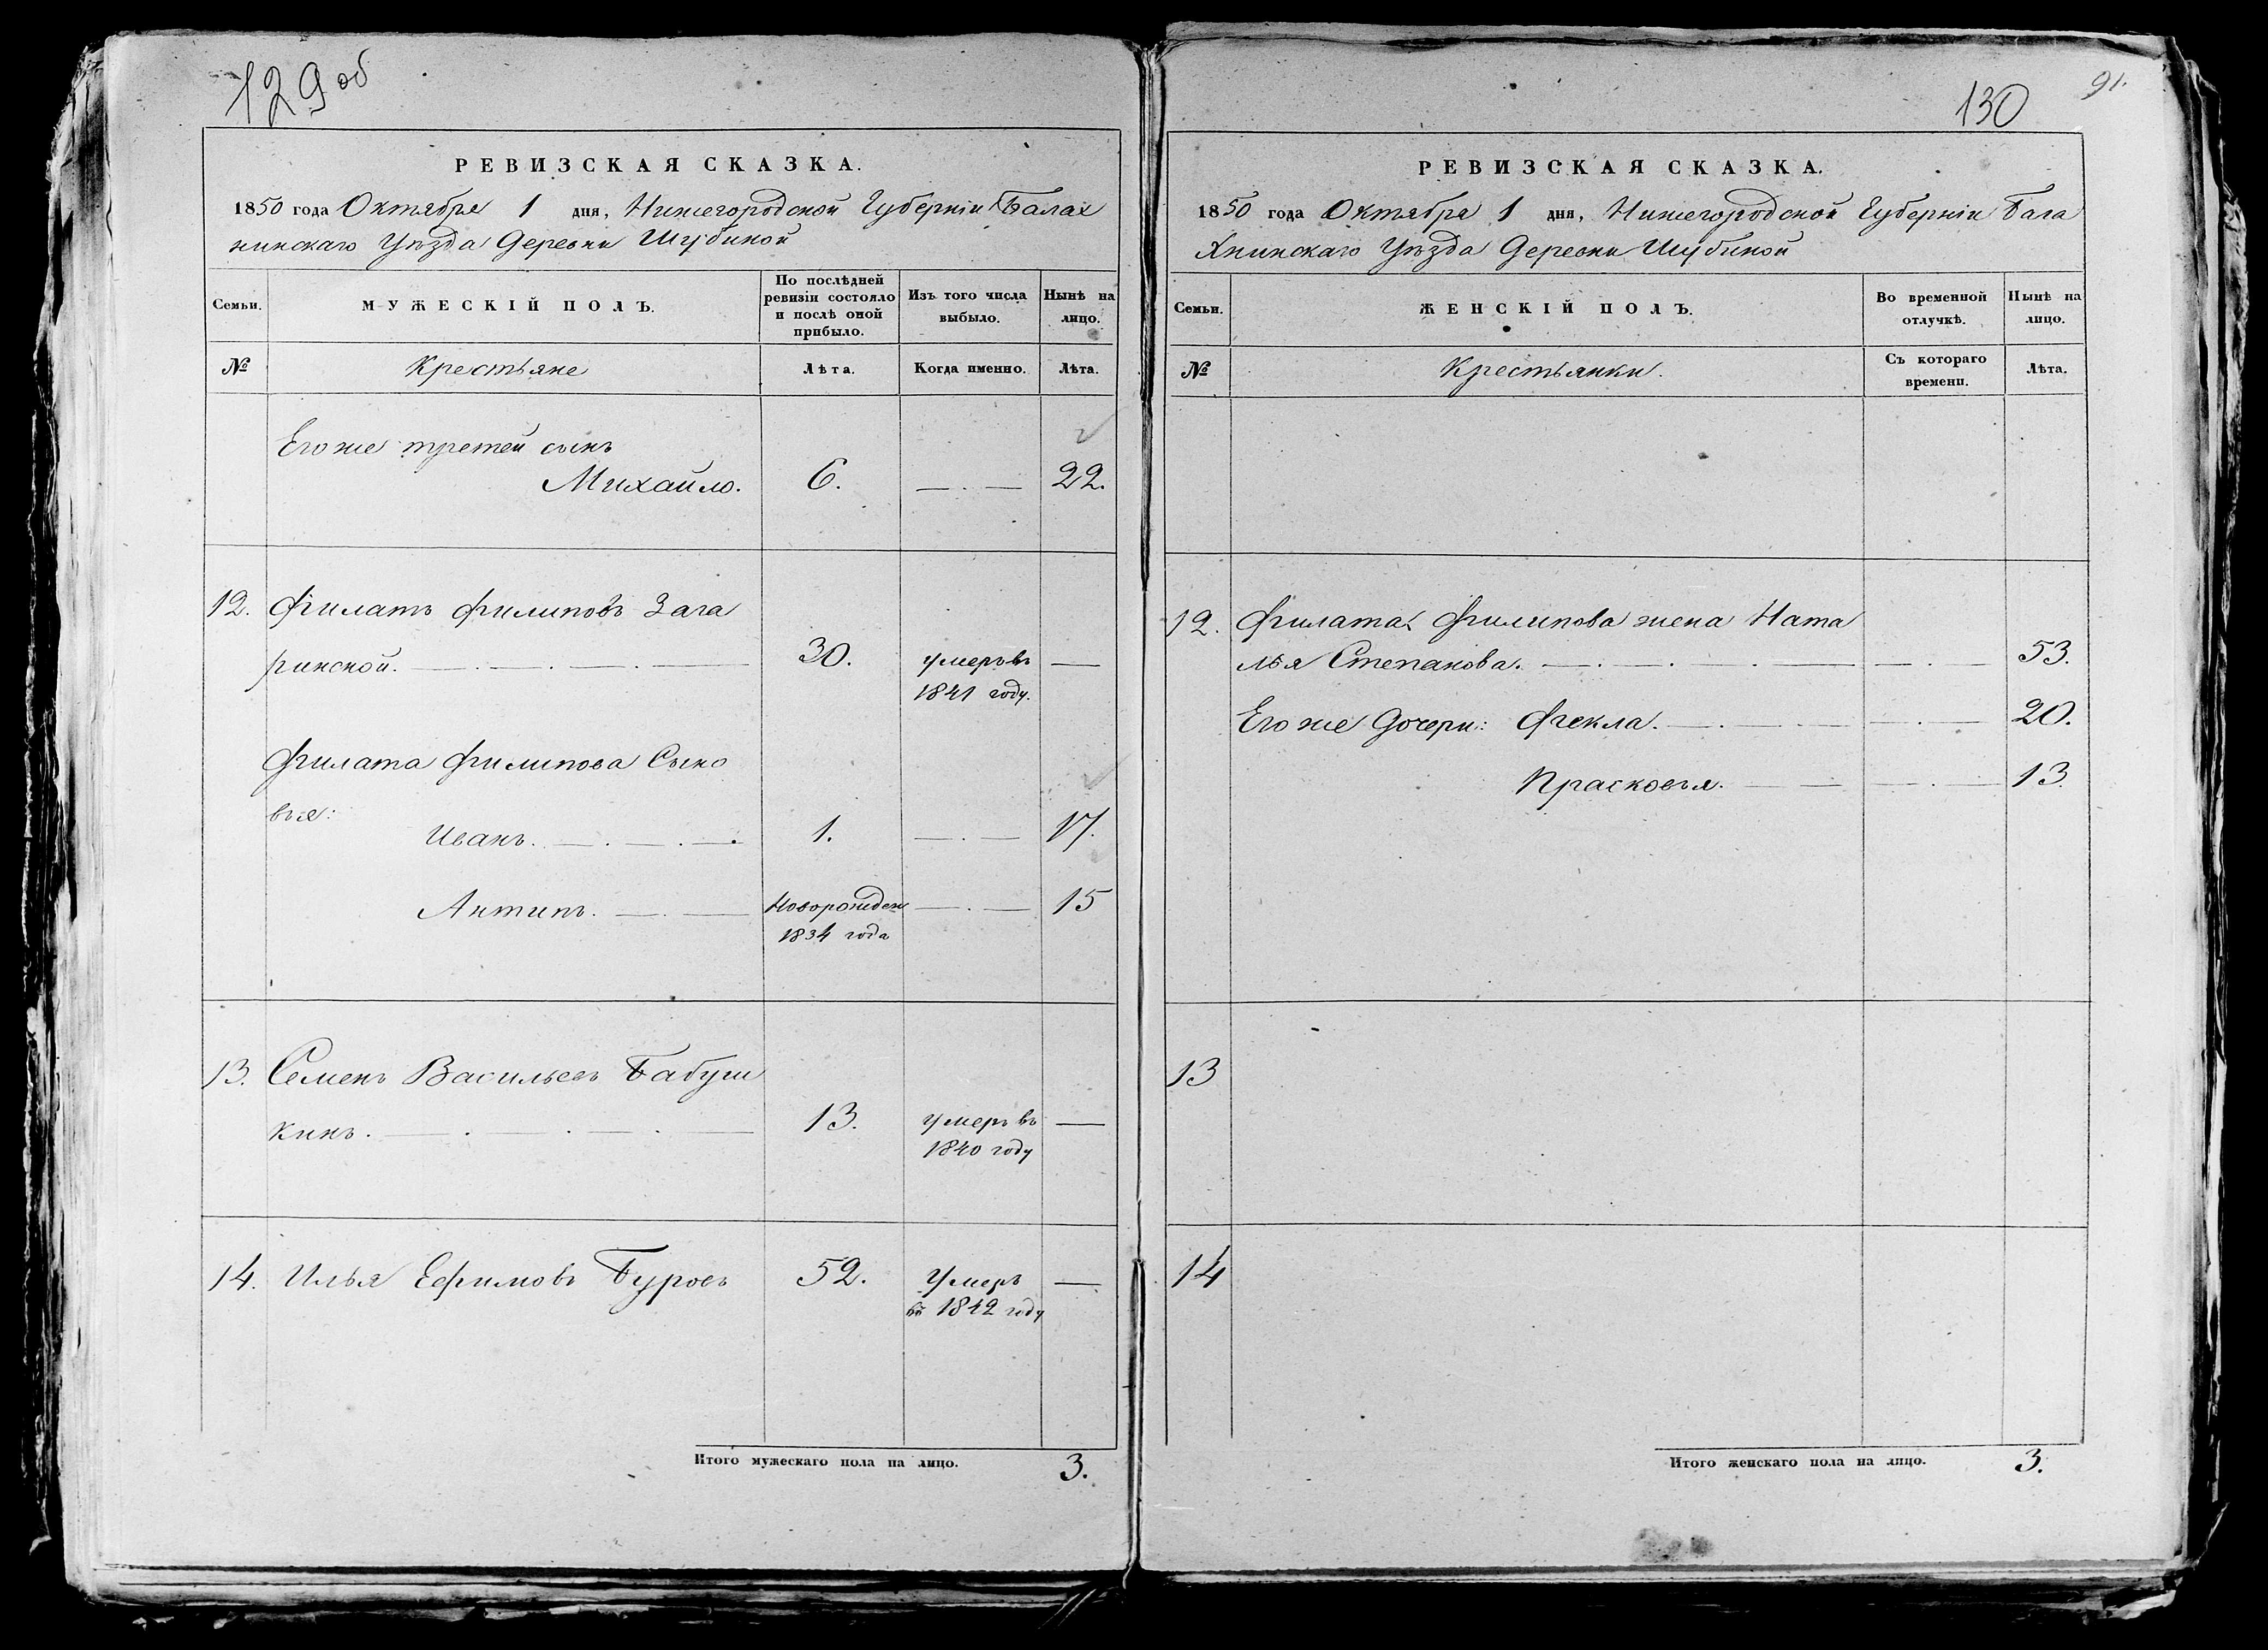 129 об
РЕВИЗСКАЯ СКАЗКА.
1850 года Октября 1 дня, Нижегородской Губерніи Балах
нинскаго Уѣзда Деревни Шубиной
Семьи.
МУЖЕСКІЙ ПОЛЪ.
По послѣдней
ревизіи состояло
и послѣ оной
прибыло.
Изъ того числа
выбыло.
Нынѣ на
лицо.
№ Крестьяне Лѣта. Когда именно. Лѣта.
Его же третей сынъ
Михайло. 6. — . — 22.
12. Филатъ Филиповъ Зага
ринской. — . — . — . — 30. умеръ въ —
1841 году.
Филата Филипова Сыно
вья:
Иванъ. — . — . — . 1. — . — 17.
Антипъ. — . — Новорожден — . — 15
1834 года
13. Семенъ Васильевъ Бабуш
кинъ. — . — . — . — 13. умеръ въ —
1840 году
14. Илья Ефимовъ Буровъ 52. Умеръ —
въ 1842 году
Итого мужескаго пола на лицо. 3.
91.
130
РЕВИЗСКАЯ СКАЗКА.
1850 года Октября 1 дня, Нижегородской Губерніи Бала
хнинскаго Уѣзда Деревни Шубиной
Семьи.
ЖЕНСКІЙ ПОЛЪ.
Во временной
отлучкѣ.
Нынѣ на
лицо.
№ Крестьянки.
Съ котораго
времени.
Лѣта.
12. Филата Филипова жена Ната
лья Степанова. — . — . — . — — . — 53.
Его же Дочери: Фекла. — . — . — — . — 20.
Прасковья. — — — . — 13
13
14
Итого женскаго пола на лицо. 3.